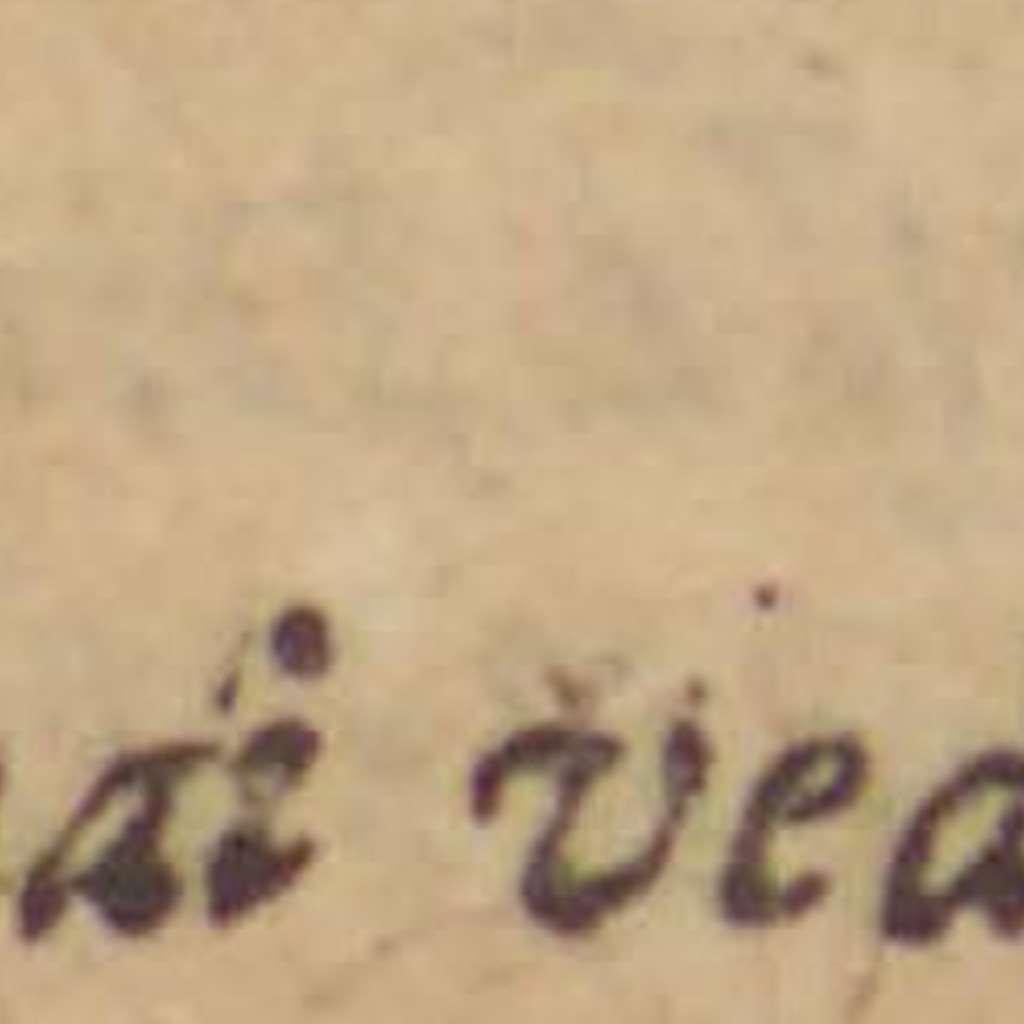 ai vea